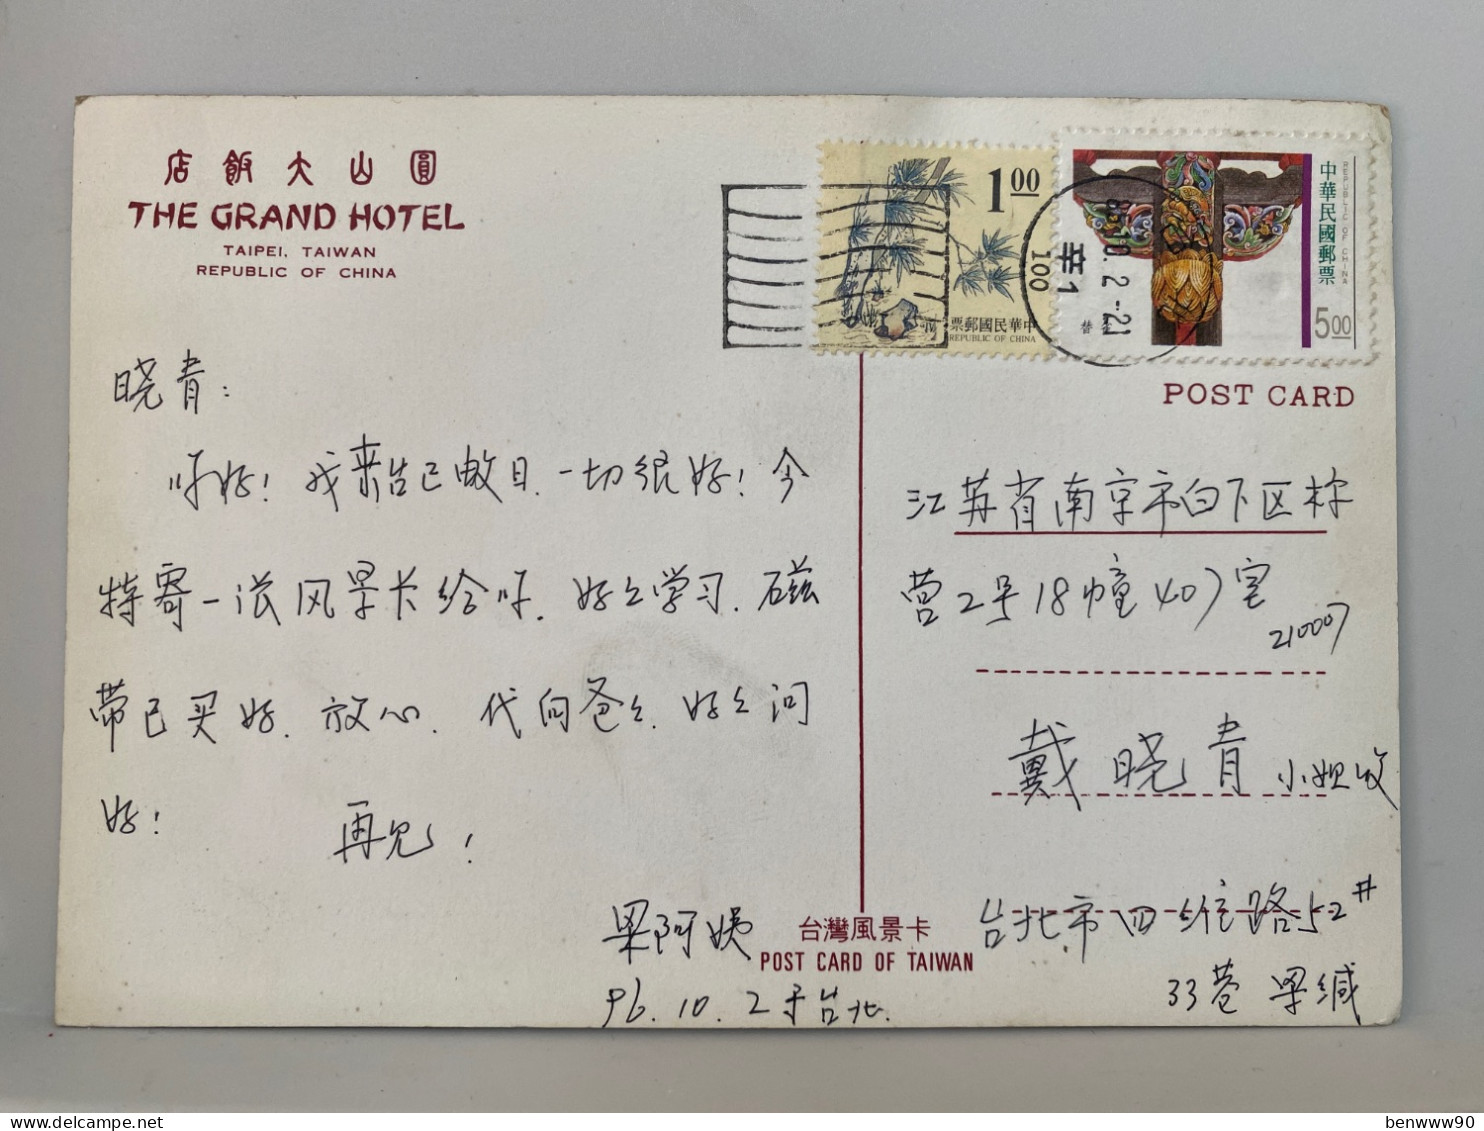 店飯大山圓
THE GRAND HOTEL
TAIPEI, TAIWAN
REPUBLIC OF CHINA
晓青:
你好! 我来台已数日、一切很好! 今
特寄一张风景卡给你. 好好学习. 磁
带已买好. 放心. 代向爸爸. 好好问
好!
再见!
梁阿姨
96.10.2于台北.
1.00
票郵國民華中
REPUBLIC OF CHINA
中華民國郵票
REPUBLIC OF CHINA
5.00
100
85.10.2.-21
POST CARD
江苏省南京市白下区
营2号18幢407室
210007
戴晓青 小姐收
台湾風景卡
POST CARD OF TAIWAN
台北市四维路52#
33巷 梁缄
benwww90